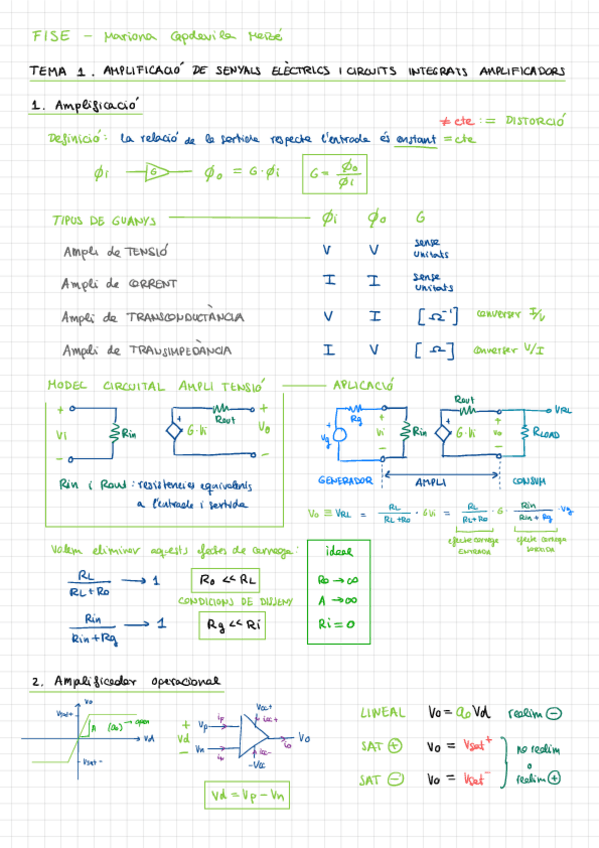 FISE - Mariona Capdevila Merzé
TEMA 1. AMPLIFICACIÓ DE SENYALS ELÈCTRICS I CIRCUITS INTEGRATS AMPLIFICADORS
1. Amplificació
≠ cte := DISTORCIÓ
Definició: la relació de la sortida respecte l'entrada és constant = cte
φi G φo = G·φi G = φo/φi
TIPUS DE GUANYS φi φo G
Ampli de TENSIÓ V V sense unitats
Ampli de CORRENT I I sense unitats
Ampli de TRANSCONDUCTÀNCIA V I [Ω⁻¹] converser I/V
Ampli de TRANSIMPEDÀNCIA I V [Ω] converser V/I
MODEL CIRCUITAL AMPLI TENSIÓ APLICACIÓ
+ Vi - Rin + G·Vi Rout + Vo -
+ Vg Rg + Vi - Rin + G·Vi Rout + Vo - RLOAD VRL
GENERADOR AMPLI CONSUM
Rin i Rout: resistències equivalents
a l'entrada i sortida
Vo ≡ VRL = RL/(RL+Ro) · GVi = RL/(RL+Ro) · G · Rin/(Rin+Rg) · Vg
efecte càrrega ENTRADA
efecte càrrega SORTIDA
Volem eliminar aquests efectes de càrrega:
RL/(RL+Ro) → 1 Ro << RL
CONDICIONS DE DISSENY
Rin/(Rin+Rg) → 1 Rg << Ri
ideal
Ro → ∞
A → ∞
Ri = 0
2. Amplificador operacional
Vo Vsat+ A (a₀) → open Vd Vsat-
+ Vd - Vp ip Vn in Vcc+ icc+ icc- -Vcc io Vo
Vd = Vp - Vn
LINEAL Vo = a₀Vd realim ⊖
SAT ⊕ Vo = Vsat⁺
SAT ⊖ Vo = Vsat⁻
no realim
o
realim ⊕